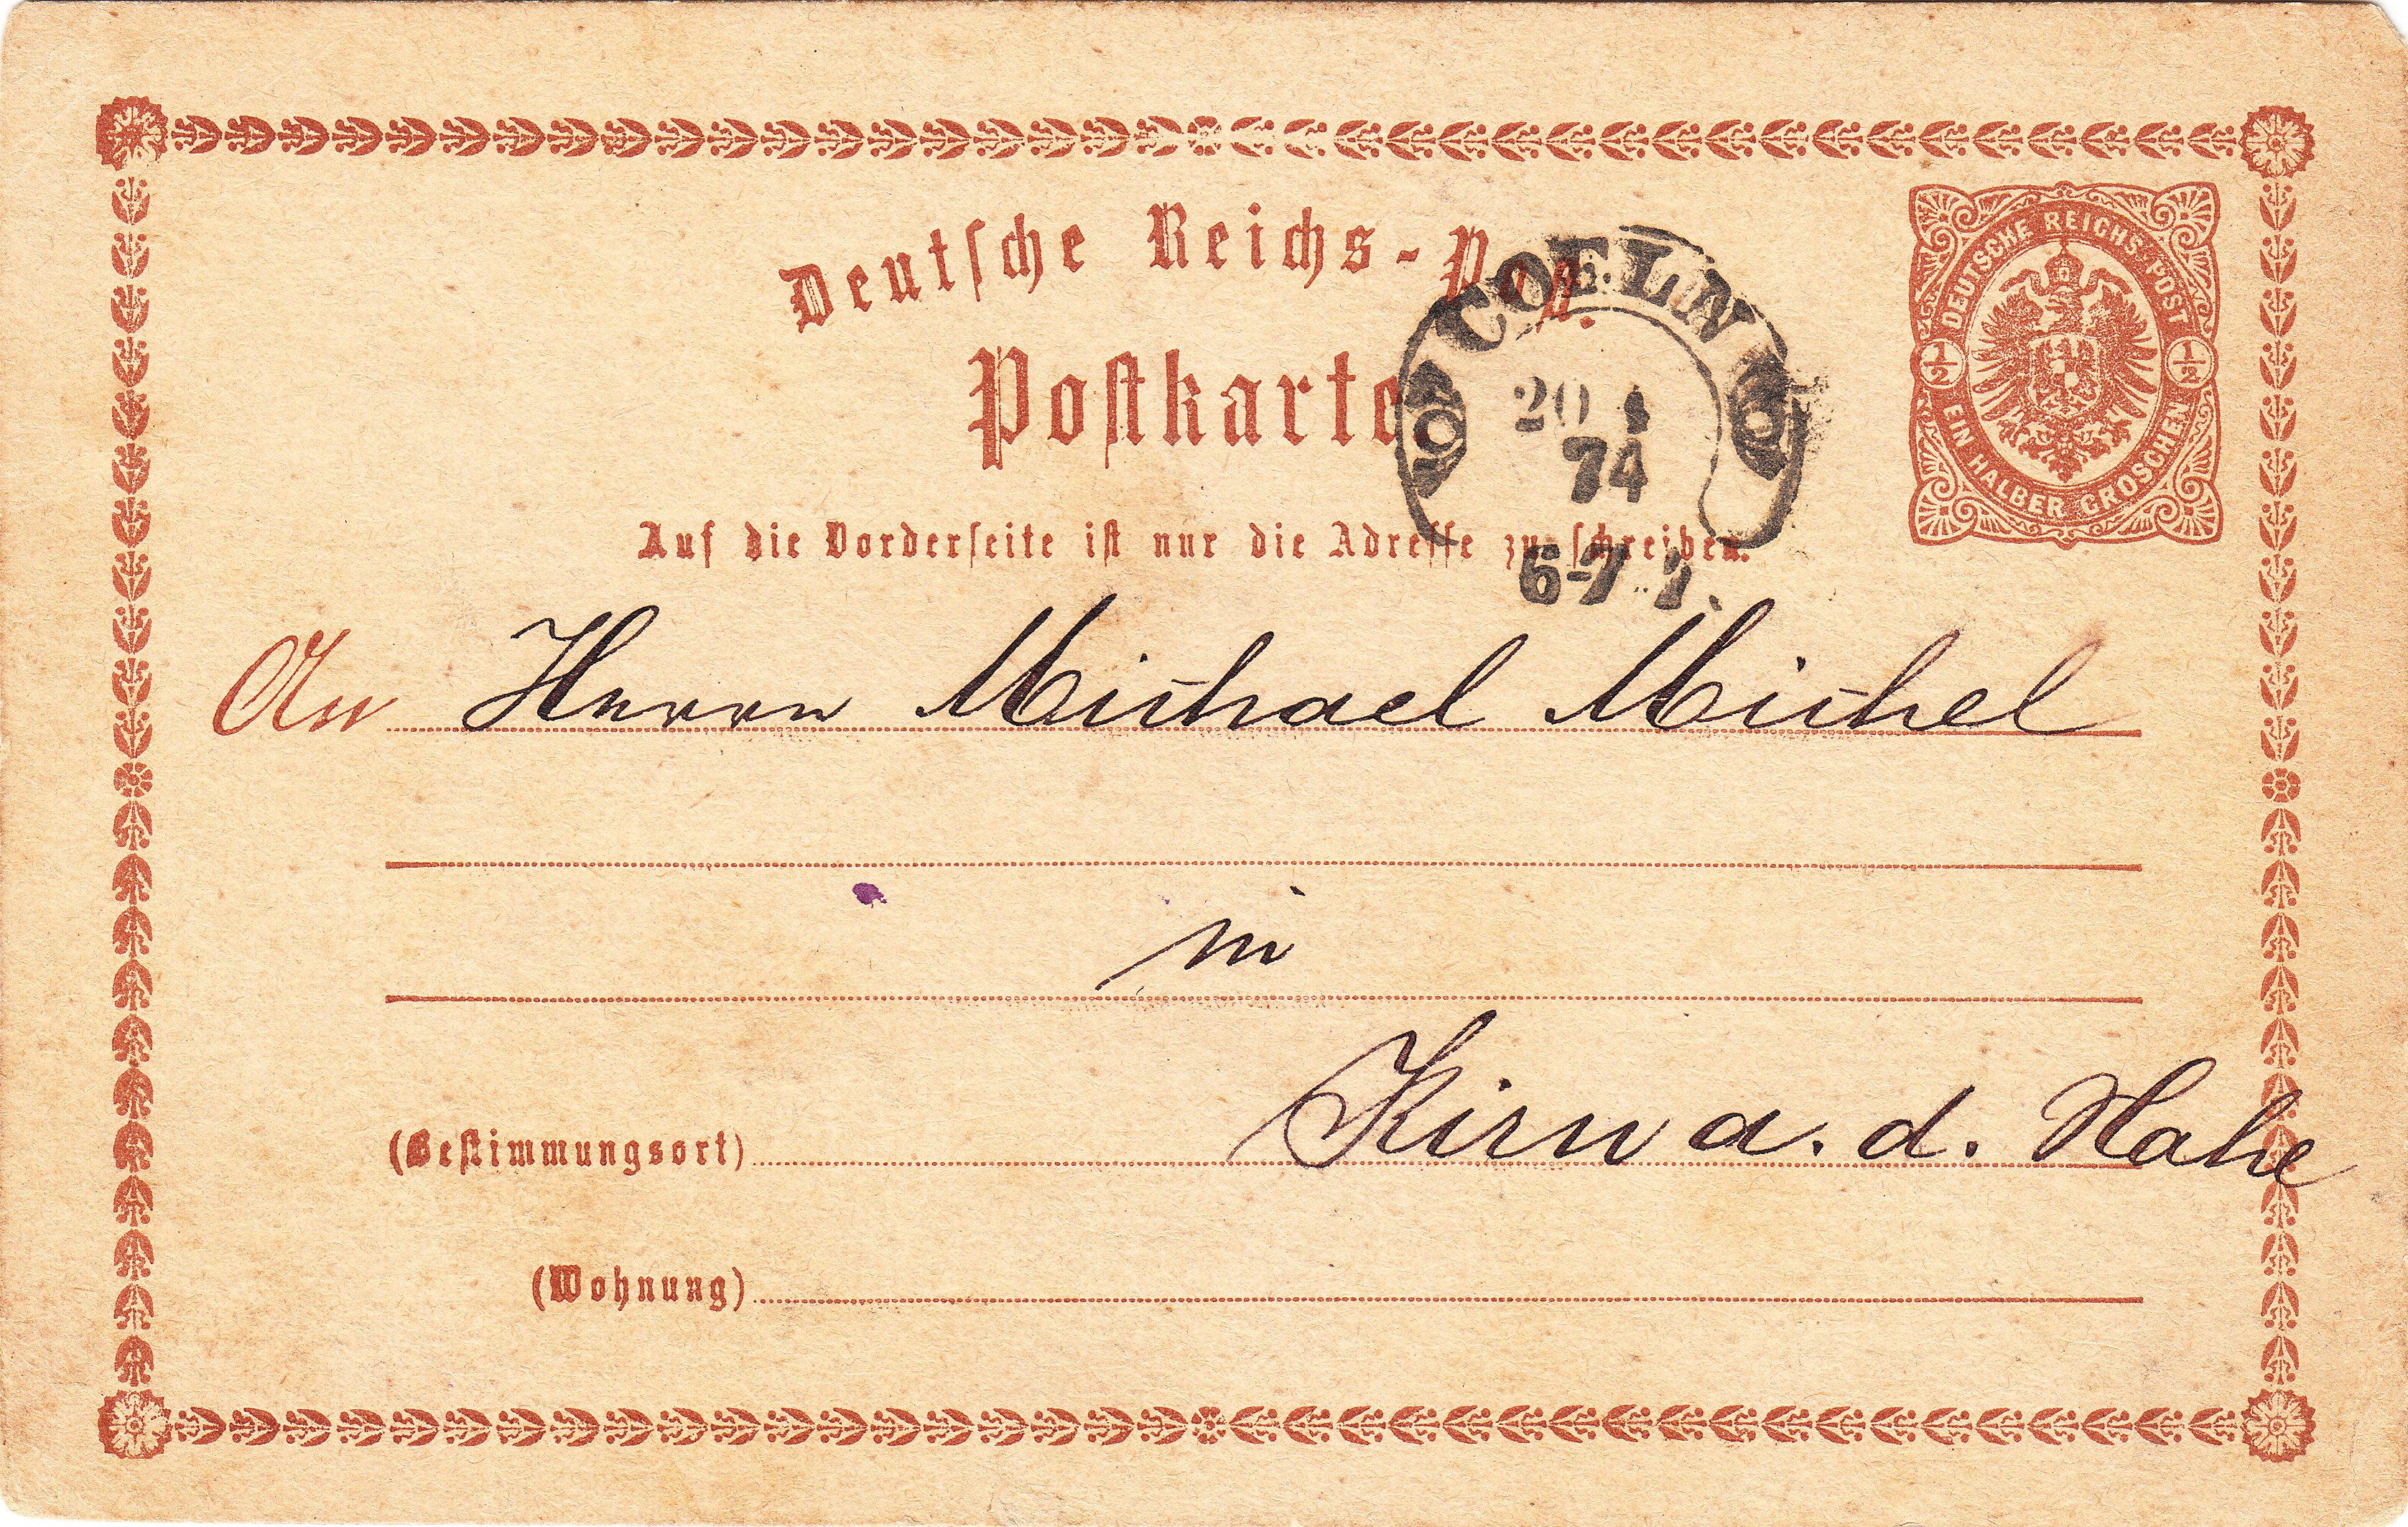 Deutsche Reichs-Post.
DEUTSCHE REICHS-POST
1/2 1/2
EIN HALBER GROSCHEN
COELN
Postkarte
20 4
74
Auf die Vorderseite ist nur die Adresse zu schreiben.
6-7
An Herrn Michael Michel
in
(Bestimmungsort) Kirn a. d. Nahe
(Wohnung)